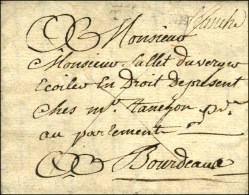 Monsieur
Monsieur Sallet du verger
Ecolier En Droit de present
Ches mr tanchon pr
au parlement
Bourdeaux